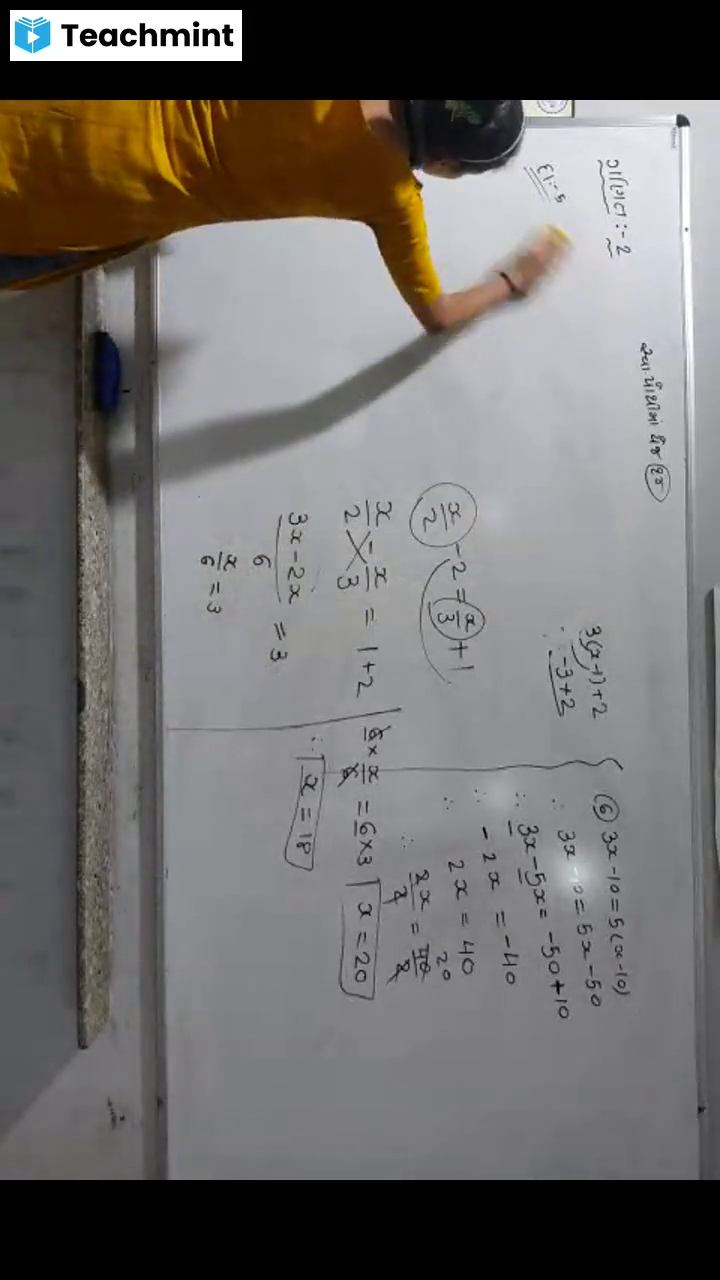 Teachmint
ગણિત :- 2
5-13
3(x-1)+2
∴ -3+2
x/2 - 2 = x/3 + 1
x/2 - x/3 = 1+2
3x-2x/6 = 3
x/6 = 3
6 × x/6 = 6×3
∴ x = 18
(6) 3x-10 = 5(x-10)
∴ 3x-10 = 5x-50
∴ 3x-5x = -50+10
∴ -2x = -40
∴ 2x = 40
∴ 2x/2 = 40/2 20
x = 20